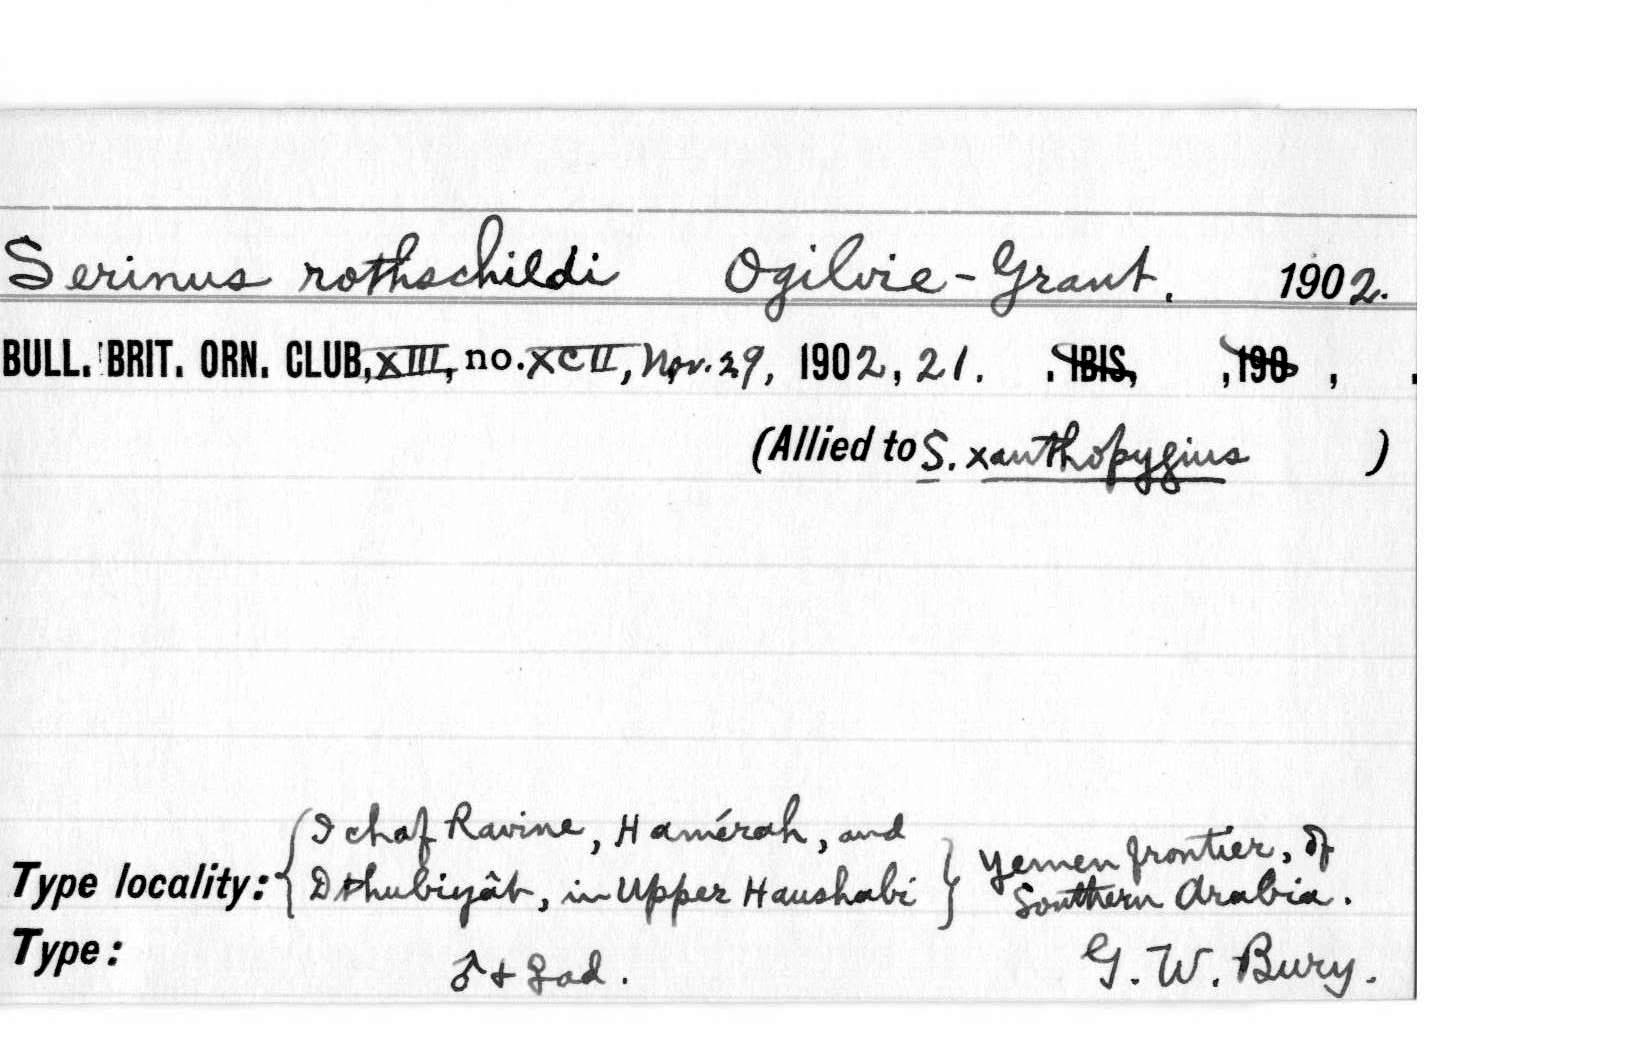 Serinus rothschildi Ogilvie-Grant. 1902.
BULL. BRIT. ORN. CLUB, XIII, no. XCII, Nov. 29, 1902, 21. . IBIS, , 190 , .
(Allied to S. xanthopygius )
Ichaf Ravine, Hamérah, and
Type locality: { Dthubiyât, in Upper Haushabi } Yemen frontier, of Southern Arabia.
Type: ♂ + ♀ ad. G. W. Bury.